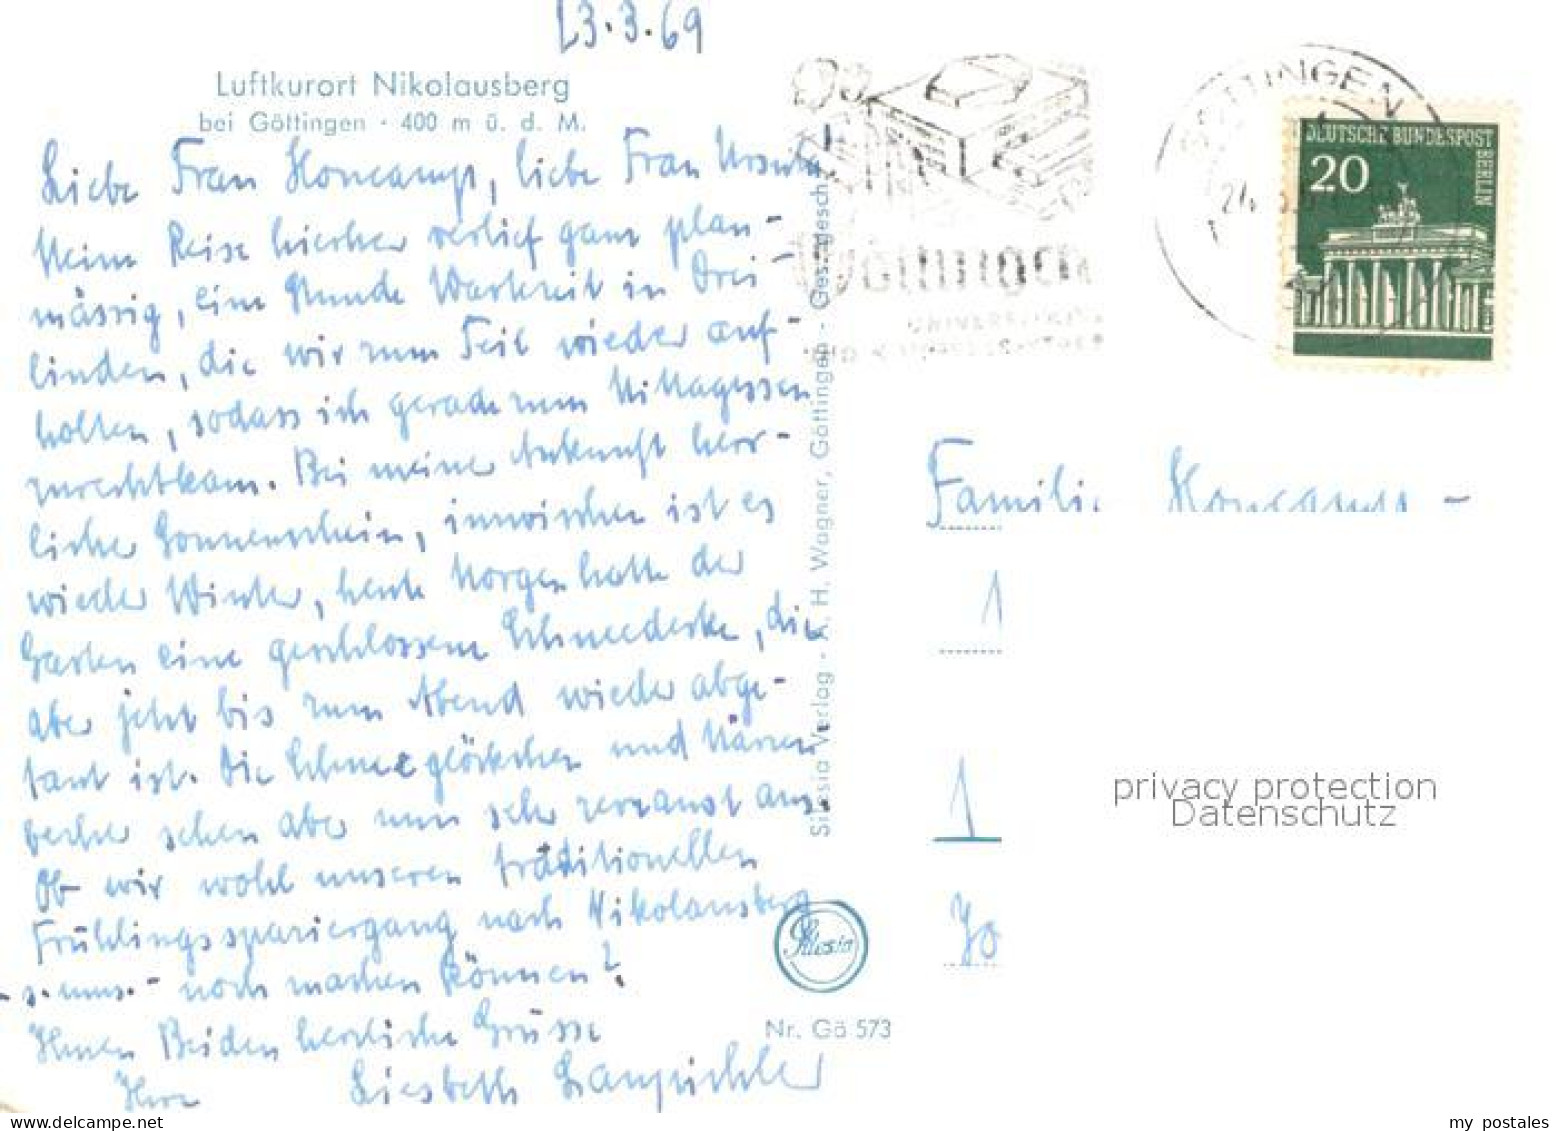 23.3.69
Luftkurort Nikolausberg
bei Göttingen · 400 m ü. d. M.
Liebe Frau Honcamp, liebe Frau Ursula,
Meine Reise hierher verlief ganz plan-
mässig, eine Stunde Wartezeit in Drei-
linden, die wir zum Teil wieder auf-
holten, sodass ich gerade zum Mittagessen
zurechtkam. Bei meiner Ankunft herr-
licher Sonnenschein, inzwischen ist es
wieder Winter, heute Morgen hatte der
Garten eine geschlossene Schneedecke, die
aber jetzt bis zum Abend wieder abge-
taut ist. Die Schneeglöckchen und Märzen-
becher sehen aber nun sehr zerzaust aus.
Ob wir wohl unseren traditionellen
Frühlingsspaziergang nach Nikolausberg
- s. ums. - noch machen können?
Ihnen Beiden herzliche Grüsse
Ihre Liesbeth
Silesia Verlag · A. H. Wagner, Göttingen - Ges. gesch.
Silesia
Nr. Gö 573
Göttingen
UNIVERSITÄTS-
GÖTTINGEN
24
DEUTSCHE BUNDESPOST
BERLIN
20
Familie Honcamp -
1
1
Jo
privacy protection
Datenschutz
www.delcampe.net
my_postales